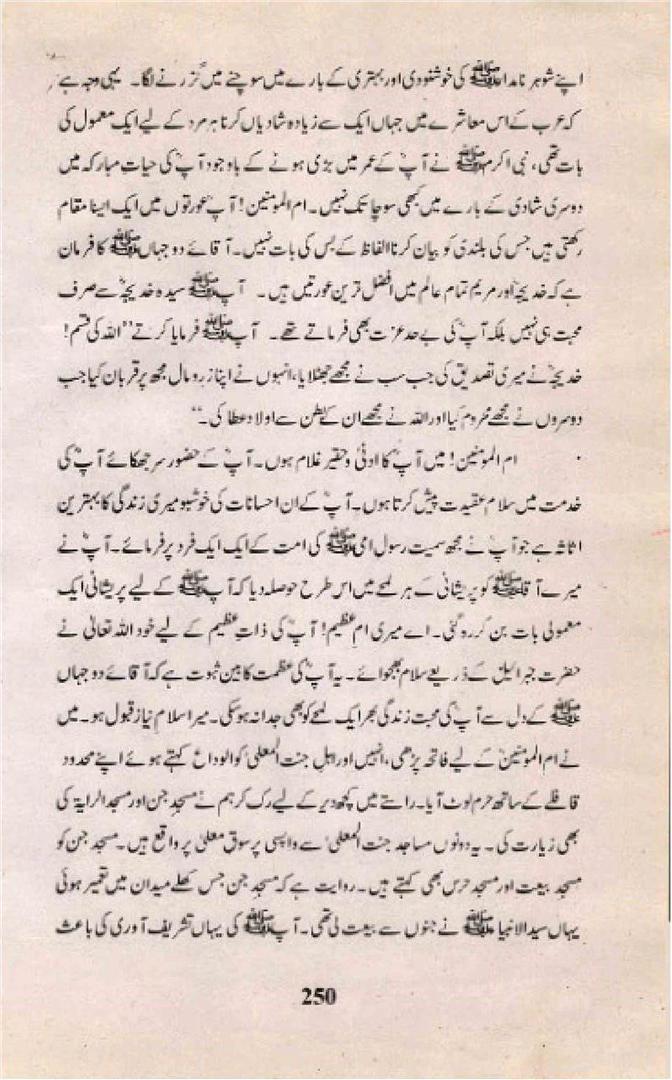 اپنے شوہر نامدار ﷺ کی خوشنودی اور بہتری کے بارے میں سوچنے میں گزرنے لگا۔ یہی وجہ ہے
کہ عرب کے اس معاشرے میں جہاں ایک سے زیادہ شادیاں کرنا ہر مرد کے لیے ایک معمول کی
بات تھی، نبی اکرم ﷺ نے آپؓ کے عمر میں بڑی ہونے کے باوجود آپؓ کی حیات مبارکہ میں
دوسری شادی کے بارے میں کبھی سوچا تک نہیں۔ ام المومنین! آپؓ عورتوں میں ایک ایسا مقام
رکھتی ہیں جس کی بلندی کو بیان کرنا الفاظ کے بس کی بات نہیں۔ آقائے دو جہاں ﷺ کا فرمان
ہے کہ خدیجہؓ اور مریم تمام عالم میں افضل ترین عورتیں ہیں۔ آپ ﷺ سیدہ خدیجہؓ سے صرف
محبت ہی نہیں بلکہ آپؓ کی بے حد عزت بھی فرماتے تھے۔ آپ ﷺ فرمایا کرتے ”اللہ کی قسم!
خدیجہؓ نے میری تصدیق کی جب سب نے مجھے جھٹلایا، انہوں نے اپنا زر و مال مجھ پر قربان کیا جب
دوسروں نے مجھے محروم کیا اور اللہ نے مجھے ان کے بطن سے اولاد عطا کی۔“
ام المومنین! میں آپؓ کا ادنیٰ و حقیر غلام ہوں۔ آپؓ کے حضور سر جھکائے آپؓ کی
خدمت میں سلام عقیدت پیش کرتا ہوں۔ آپؓ کے ان احسانات کی خوشبو میری زندگی کا بہترین
اثاثہ ہے جو آپؓ نے مجھ سمیت رسول امی ﷺ کی امت کے ایک ایک فرد پر فرمائے۔ آپؓ نے
میرے آقا ﷺ کو پریشانی کے ہر لمحے میں اس طرح حوصلہ دیا کہ آپ ﷺ کے لیے پریشانی ایک
معمولی بات بن کر رہ گئی۔ اے میری ام عظیم! آپؓ کی ذات عظیم کے لیے خود اللہ تعالیٰ نے
حضرت جبرائیل کے ذریعے سلام بھجوائے۔ یہ آپؓ کی عظمت کا بین ثبوت ہے کہ آقائے دو جہاں
ﷺ کے دل سے آپؓ کی محبت زندگی بھر ایک لمحے کو بھی جدا نہ ہو سکی۔ میرا سلام نیاز قبول ہو۔ میں
نے ام المومنینؓ کے لیے فاتحہ پڑھی، انہیں اور اہل جنت المعلیٰ کو الوداع کہتے ہوئے اپنے محدود
قافلے کے ساتھ حرم لوٹ آیا۔ راستے میں کچھ دیر کے لیے رک کر ہم نے مسجد جن اور مسجد الرایۃ کی
بھی زیارت کی۔ یہ دونوں مساجد جنت المعلیٰ سے واپسی پر سوق معلیٰ پر واقع ہیں۔ مسجد جن کو
مسجد بیعت اور مسجد حرس بھی کہتے ہیں۔ روایت ہے کہ مسجد جن جس کھلے میدان میں تعمیر ہوئی
یہاں سید الانبیا ﷺ نے جنوں سے بیعت لی تھی۔ آپ ﷺ کی یہاں تشریف آوری کی باعث
250